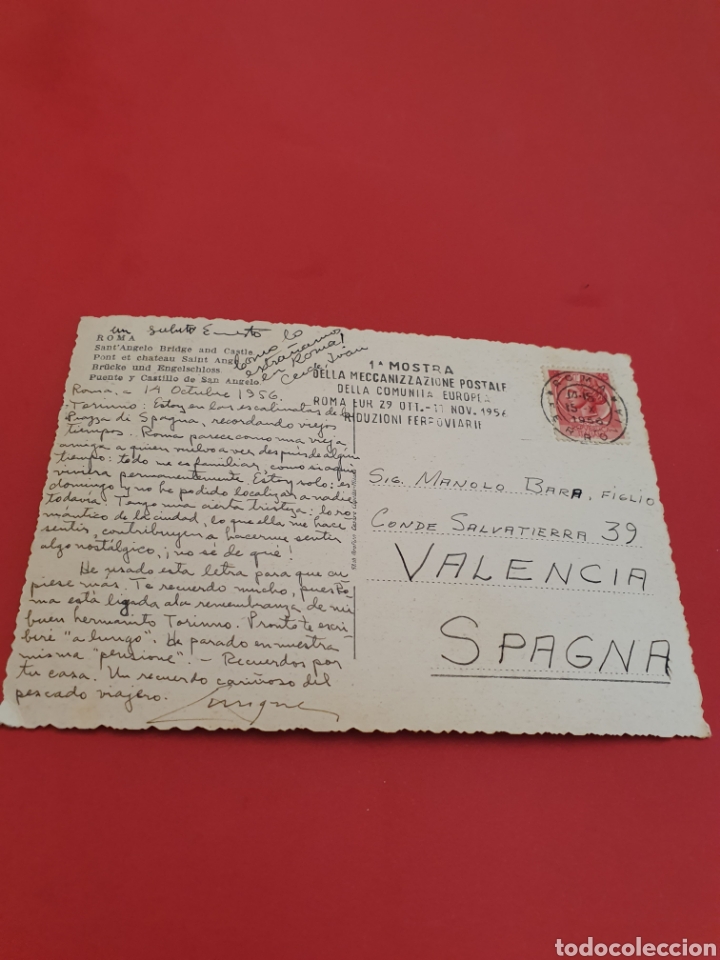 un saluto Ernesto
como lo
extrañamos
en Roma!
Iván
ROMA
Sant'Angelo Bridge and Castle
Pont et chateau Saint Ange
Brücke und Engelschloss
Puente y Castillo de San Angelo
Roma, a 14 Octubre 1956.
Torinno: Estoy en las escalinatas de la
Piazza di Spagna, recordando viejos
tiempos. Roma parece como una vieja
amiga a quien vuelvo a ver después de algún
tiempo: todo me es familiar, como si aquí
viviera permanentemente. Estoy solo; es
domingo y no he podido localizar a nadie
todavía. Tengo una cierta tristeza: lo ro-
mántico de la ciudad, lo que ella me hace
sentir, contribuyen a hacerme sentir
algo nostálgico, ¡no sé de qué!
He usado esta letra para que cu
piese más. Te recuerdo mucho, pues Ro-
ma está ligada a la remembranza de mi
buen hermanito Torinno. Pronto te escri-
biré "a lungo". He parado en nuestra
misma "pensione". - Recuerdos por
tu casa. Un recuerdo cariñoso del
pescado viajero.
Enrique
1ª MOSTRA
DELLA MECCANIZZAZIONE POSTALE
DELLA COMUNITA EUROPEA
ROMA EUR 29 OTT. - 11 NOV. 1956
RIDUZIONI FERROVIARIE
ROMA
1956
SIG. MANOLO BARA, FIGLIO
CONDE SALVATIERRA 39
VALENCIA
SPAGNA
todocoleccion